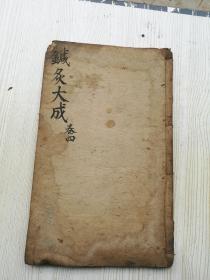 鍼灸大成
卷四